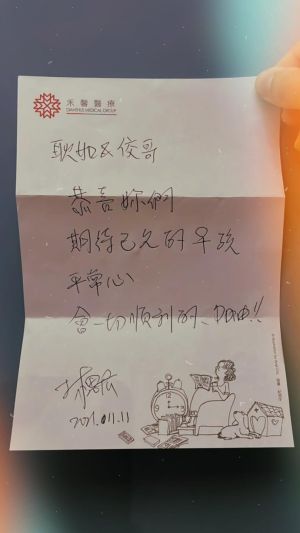 禾馨醫療
DIANTHUS MEDICAL GROUP
如&俊哥
恭喜妳們
期待已久的
平常心
會一切順利的、加油!!
2021.011.11